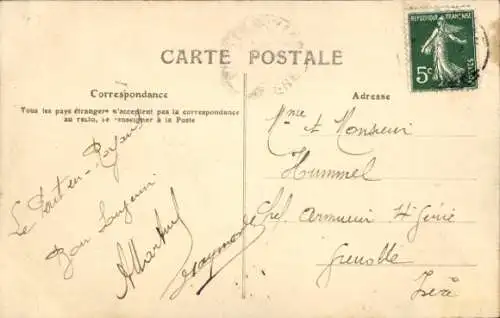 CARTE POSTALE
RÉPUBLIQUE FRANÇAISE
5c
POSTES
Correspondance
Tous les pays étrangers n'acceptent pas la correspondance
au recto, se renseigner à la Poste
Le Pont-en-Royans
Bon
Raymonde
Adresse
Mme et Monsieur
Hummel
Chef Armurier 4e Génie
Grenoble
Isère